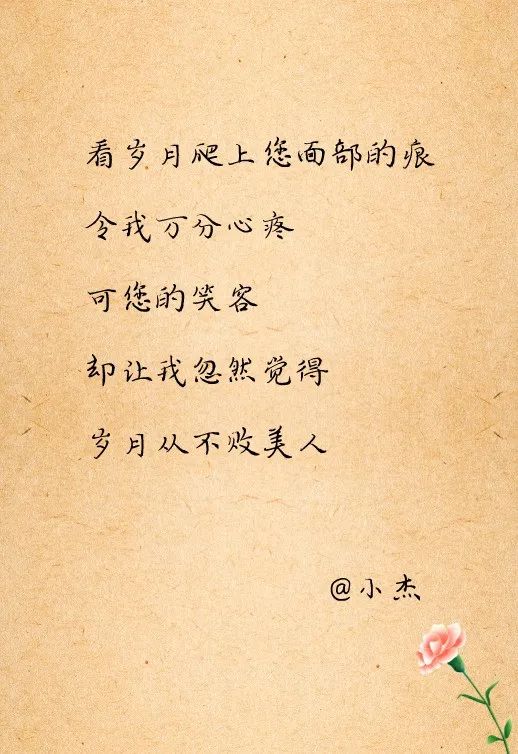 看岁月爬上您面部的痕
令我万分心疼
可您的笑容
却让我忽然觉得
岁月从不败美人
@小杰